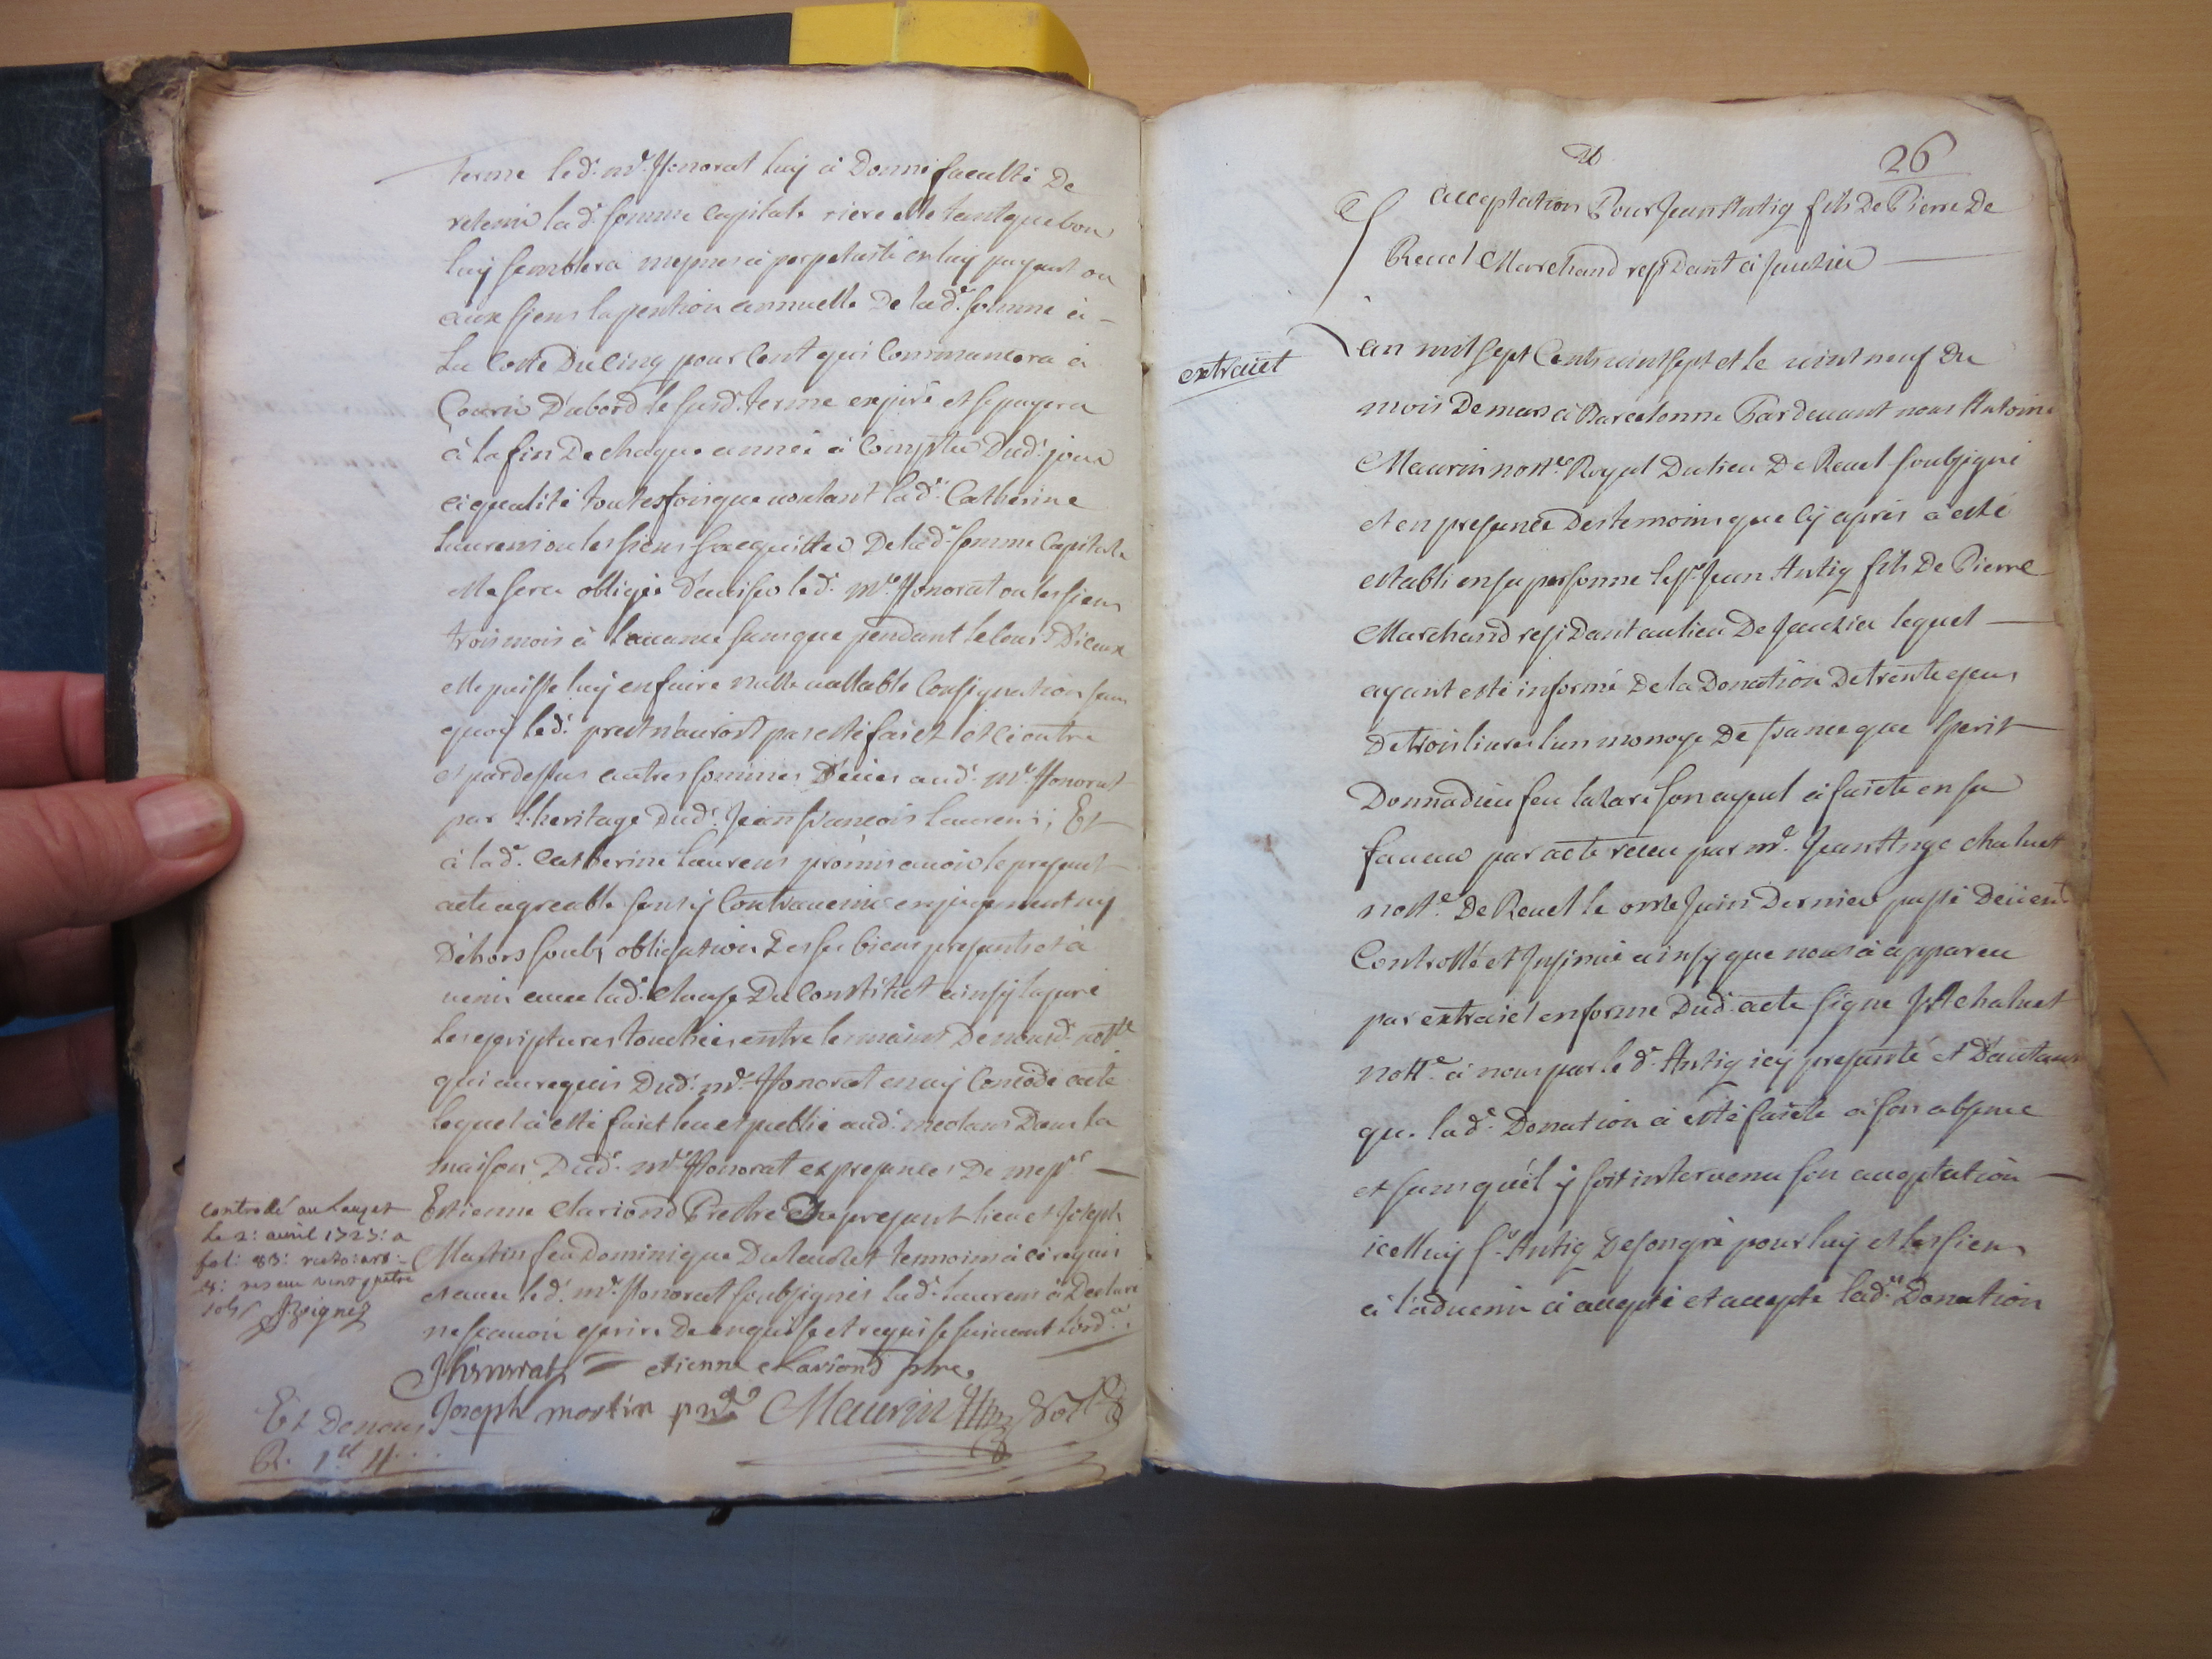 terme led: me. Honorat luy à Donné faculté De
retenir lad. somme Capitale riere elle tant que bon
luy semblera mesmes à perpetuité en luy payant ou
aux siens la pention annuelle De lad. somme à
La Cotte Du Cinq pour Cent qui Commancera à
Courir D'abord le susd. terme expiré et se payera
à la fin De chaque année à Compter Dud. jour
à qualité toutesfois que voulant lad. Catherine
Laurens ou les siens s'acquitter De lad. somme Capitale
elle sera obligée D'aviser led. me. Honorat ou les siens
trois mois à l'avance sans que pendant le Cours D'iceux
elle puisse luy en faire nulle vallable Consignation sans
quoy led. prest n'auroit pas esté faict et ce outre
et par dessus autres sommes Deües aud. me. Honorat
par l'heritage Dud. Jean françois Laurens; Et
à lad. Catherine Laurens promis avoir le present
acte agreable sans y Contrevenir en jugement ny
Dehors soubs obligation De ses biens presants et à
venir avec lad. clause Du Constitut ainsy la juré
les escriptures touchées entre les mains De nousd. notre.
qui au requis Dud. me. Honorat en ay Concedé acte
lequel à esté faict leu et publié aud. meolans Dans la
maison Dud. me. Honorat ez presences De messre.
Estienne Clariond Prestre Du present lieu et Joseph
Martin feu Dominique Du Lauzet temoins à ce requis
et avec led. me. Honorat soubsignés lad. Laurens à Declaré
ne scavoir escrire De enquise et requise suivant l'ord.ce
JHonorat etienne clariond ptre
Joseph martin pnt. Maurin Nore
Et De nous
R. 1tt 4
Controllé au Lauzet
le 2: avril 1727: a
fol: 83: recto: art:
8: receu vint quatre
sols
26
acceptation Pour Jean Antiq fils De Pierre De
Revel Marchand residant à Jauzier
extraict
L'an mil sept Cents vint sept et le vint neuf du
mois De mars à Barcelonne Par devant nous Antoine
Maurin notre. Royal Du lieu De Revel soubsigné
et en presence Des temoins que Cy apres à esté
establi en sa personne le sr. Jean Antiq fils De Pierre
Marchand residant au lieu De Jauzier lequel
ayant esté informé De la Donation De trente escus
De trois livres l'un monoye De france que Sperit
Donnadieu feu Lazare son ayeul à faicte en sa
faveur par acte receu par me. Jean Ange Chaluet
notre. De Revel le onze Juin Dernier passé Deüem.t
Controllé et Insinué ainsy que nous à appareu
par extraict en forme Dud. acte signe JA Chaluet
notre. à nous par led. Antiq icy presenté et D'autant
que lad. Donation à esté faicte à son absence
et sans qu'il y soit intervenu son acceptation
icelluy sr. Antiq De son gré pour luy et les siens
à l'advenir à accepté et accepte lad. Donation